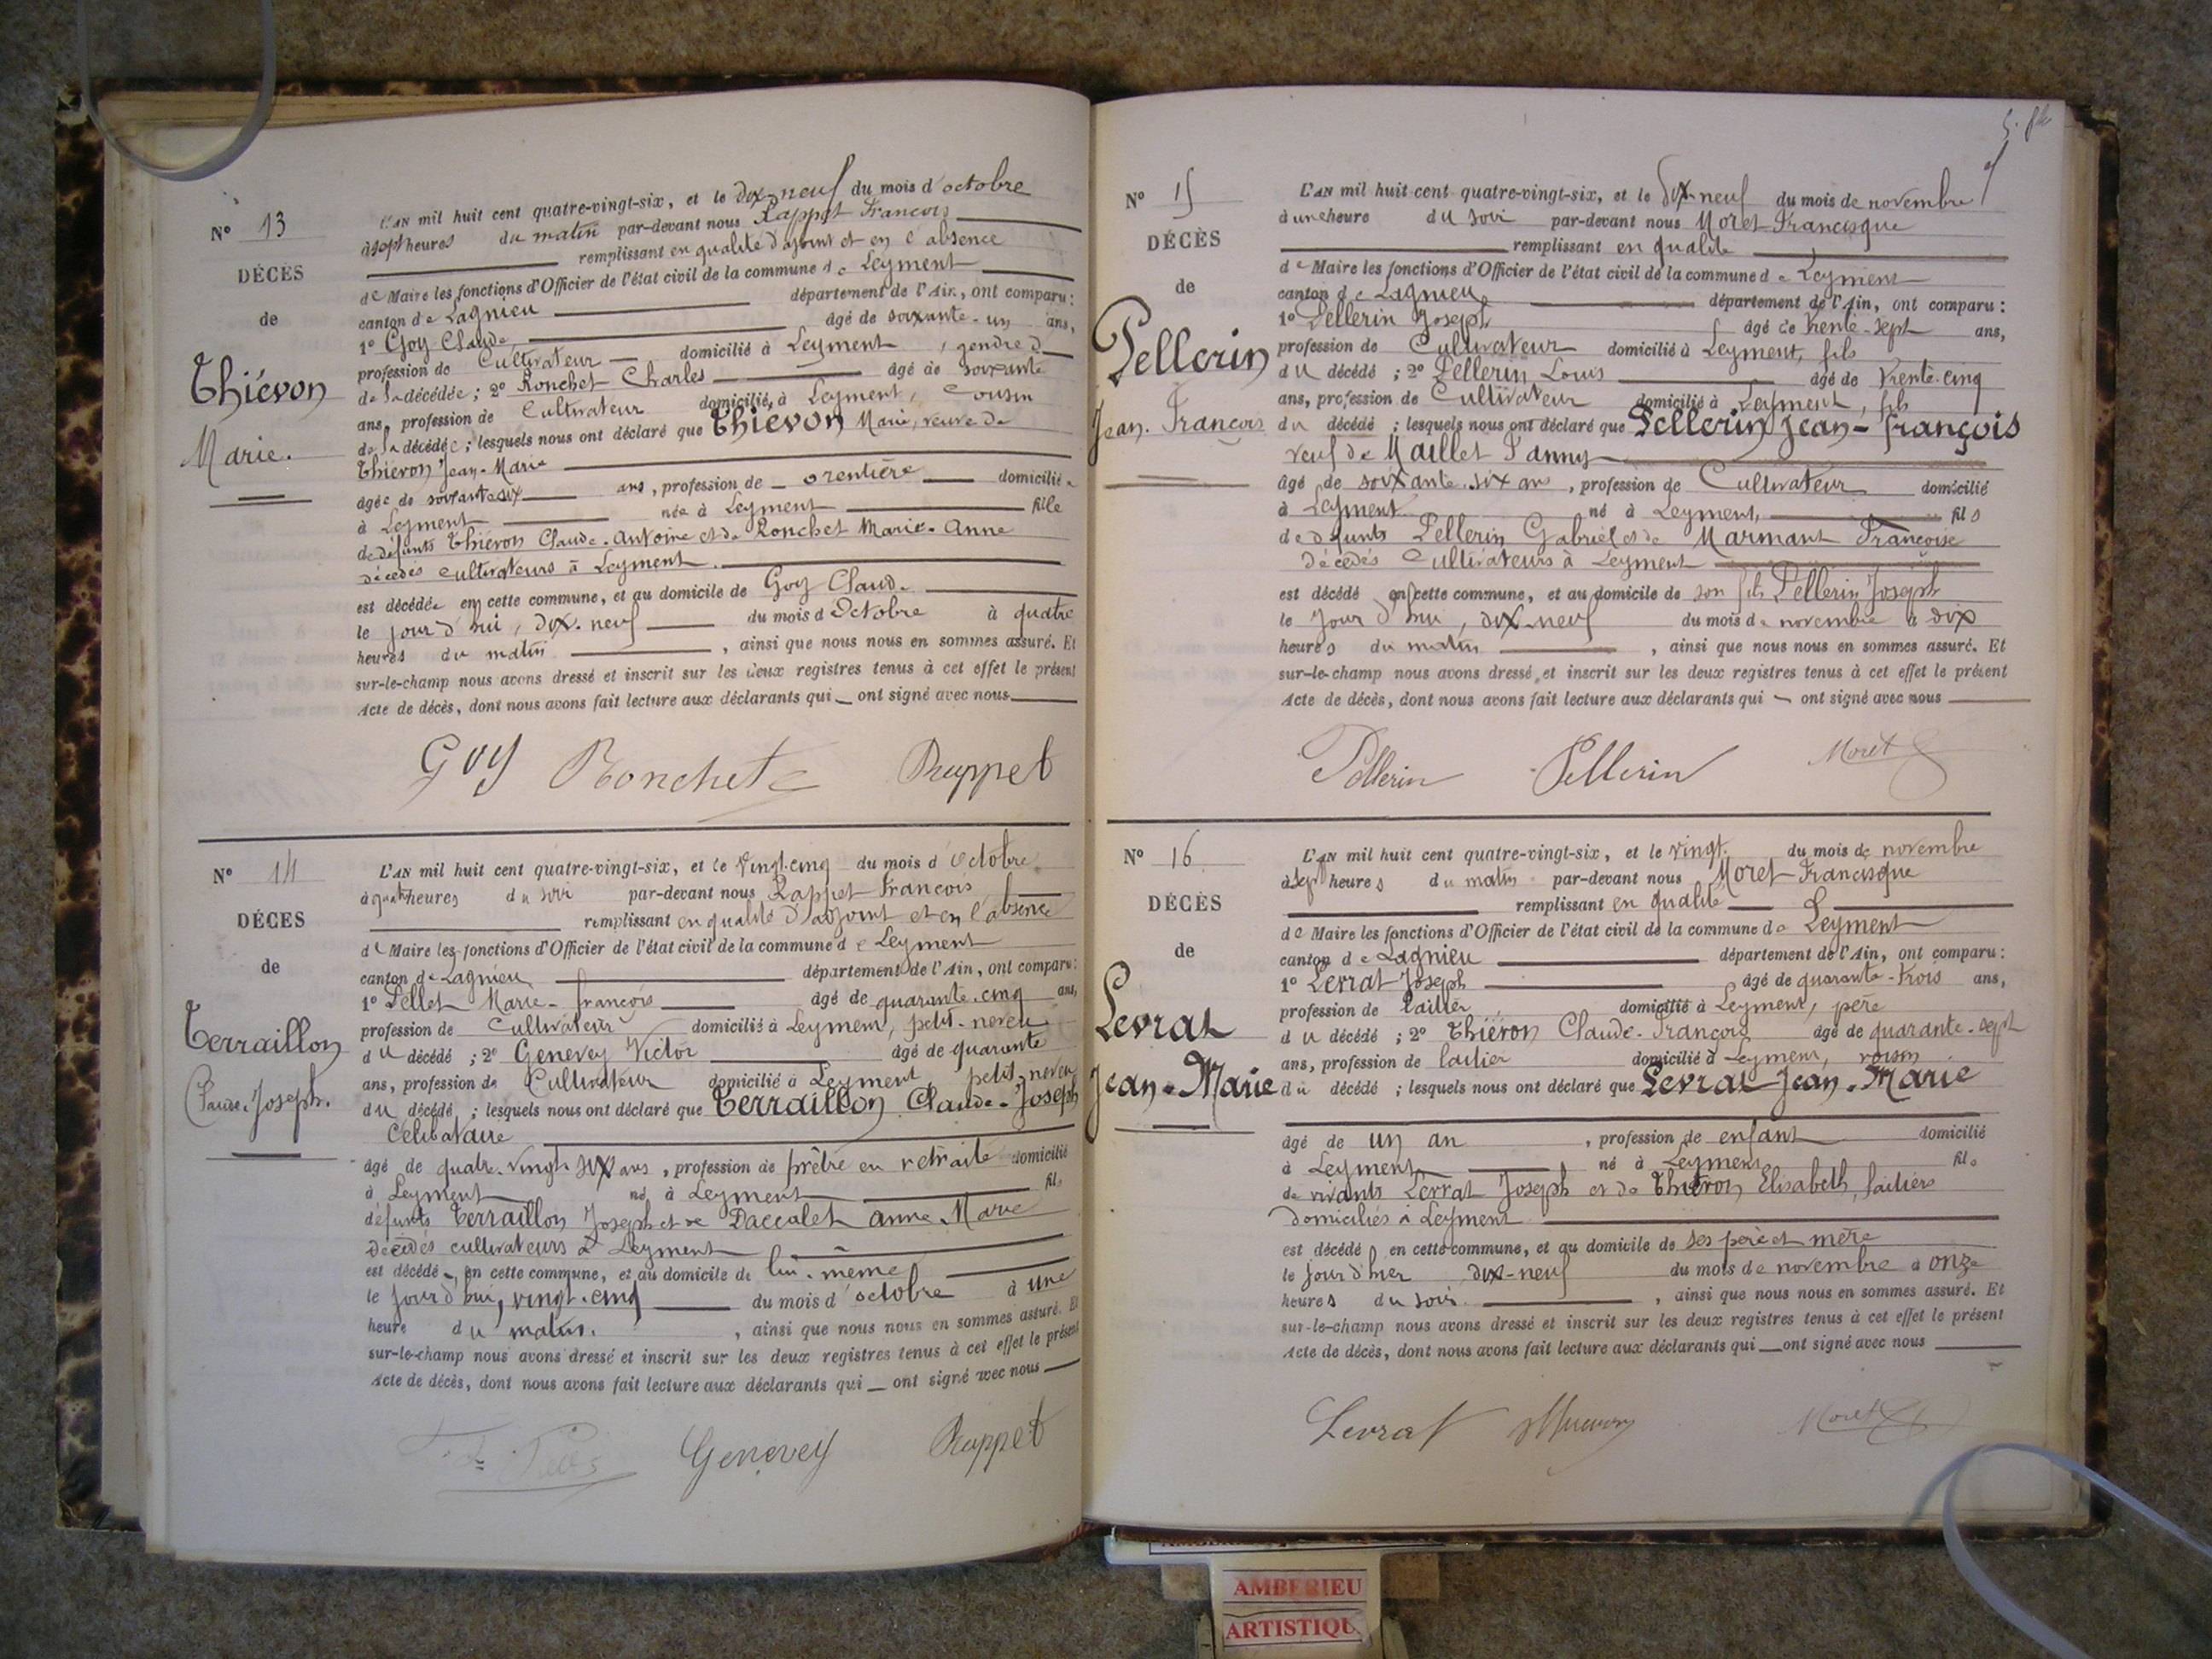 N° 13
DÉCÈS
de
Thiévon
Marie.
L'AN mil huit cent quatre-vingt-six, et le dix-neuf du mois d'octobre
à sept heures du matin par-devant nous Rappet Francois
remplissant en qualité d'adjoint et en l'absence
de Maire les fonctions d'Officier de l'état civil de la commune de Leyment
canton de Lagnieu département de l'Ain, ont comparu :
1° Goy Claude, âgé de soixante-un ans,
profession de Cultivateur domicilié à Leyment, gendre d
de la décédée ; 2° Ronchet Charles âgé de soixante
ans, profession de Cultivateur domicilié à Leyment, Cousin
de la décédée ; lesquels nous ont déclaré que Thievon Marie, veuve de
Thievon Jean-Marie
agée de soixante six ans, profession de rentière domiciliée
à Leyment née à Leyment fille
de défunts Thiévon Claude-Antoine et de Ronchet Marie-Anne
décédés cultivateurs à Leyment.
est décédée en cette commune, et au domicile de Goy Claude
le jour d'hui, dix-neuf du mois d'Octobre à quatre
heures du matin, ainsi que nous nous en sommes assuré. Et
sur-le-champ nous avons dressé et inscrit sur les deux registres tenus à cet effet le présent
Acte de décès, dont nous avons fait lecture aux déclarants qui ont signé avec nous
Goy Ronchet Rappet
N° 14
DÉCES
de
Terraillon
Claude-Joseph.
L'AN mil huit cent quatre-vingt-six, et le vingt-cinq du mois d'octobre
à quatre heures du soir par-devant nous Rappet Francois
remplissant en qualité d'adjoint et en l'absence
de Maire les fonctions d'Officier de l'état civil de la commune de Leyment
canton de Lagnieu département de l'Ain, ont comparu :
1° Pellet Marie-françois âgé de quarante-cinq ans,
profession de Cultivateur domicilié à Leyment, petit-neveu
du décédé ; 2° Genevey Victor âgé de quarante
ans, profession de Cultivateur domicilié à Leyment, petit-neveu
du décédé ; lesquels nous ont déclaré que Terraillon Claude-Joseph
Célibataire
âgé de quatre-vingt-six ans, profession de prêtre en retraite domicilié
à Leyment né à Leyment fils
défunts Terraillon Joseph et de Daccalet Anne-Marie
décédés cultivateurs à Leyment
est décédé en cette commune, et au domicile de lui-même
le jour d'hui, vingt-cinq du mois d'octobre à une
heure du matin. , ainsi que nous nous en sommes assuré. Et
sur-le-champ nous avons dressé et inscrit sur les deux registres tenus à cet effet le présent
Acte de décès, dont nous avons fait lecture aux déclarants qui ont signé avec nous
Genevey Rappet
N° 15
DÉCÈS
de
Pellerin
Jean-François
L'AN mil huit cent quatre-vingt-six, et le dix-neuf du mois de novembre
à une heure du soir par-devant nous Moret Francisque
remplissant en qualité
de Maire les fonctions d'Officier de l'état civil de la commune de Leyment
canton de Lagnieu département de l'Ain, ont comparu :
1° Pellerin Joseph âgé de trente-sept ans,
profession de Cultivateur domicilié à Leyment, fils
du décédé ; 2° Pellerin Louis âgé de trente-cinq
ans, profession de Cultivateur domicilié à Leyment, fils
du décédé ; lesquels nous ont déclaré que Pellerin Jean-françois
veuf de Maillet Fanny
âgé de soixante-six ans, profession de Cultivateur domicilié
à Leyment né à Leyment, fils
de défunts Pellerin Gabriel et de Marmant Françoise
décédés Cultivateurs à Leyment
est décédé en cette commune, et au domicile de son fils Pellerin Joseph
le jour d'hui, dix-neuf du mois de novembre à dix
heures du matin , ainsi que nous nous en sommes assuré. Et
sur-le-champ nous avons dressé et inscrit sur les deux registres tenus à cet effet le présent
Acte de décès, dont nous avons fait lecture aux déclarants qui ont signé avec nous
Pellerin Pellerin Moret
N° 16
DÉCÈS
de
Levrat
Jean-Marie
L'AN mil huit cent quatre-vingt-six, et le vingt. du mois de novembre
à sept heures du matin par-devant nous Moret Francisque
remplissant en qualité
de Maire les fonctions d'Officier de l'état civil de la commune de Leyment
canton de Lagnieu département de l'Ain, ont comparu :
1° Levrat Joseph âgé de quarante-trois ans,
profession de laitier domicilié à Leyment, père
du décédé ; 2° Thiévon Claude-François âgé de quarante-sept
ans, profession de laitier domicilié à Leyment, voisin
du décédé ; lesquels nous ont déclaré que Levrat Jean-Marie
âgé de un an , profession de enfant domicilié
à Leyment, né à Leyment fils
de vivants Levrat Joseph et de Thiévon Elisabeth, laitiers
domiciliés à Leyment
est décédé en cette commune, et au domicile de ses père et mère
le jour d'hier dix-neuf du mois de novembre à onze
heures du soir. , ainsi que nous nous en sommes assuré. Et
sur-le-champ nous avons dressé et inscrit sur les deux registres tenus à cet effet le présent
Acte de décès, dont nous avons fait lecture aux déclarants qui ont signé avec nous
Levrat Thievon Moret
AMBERIEU
ARTISTIQU